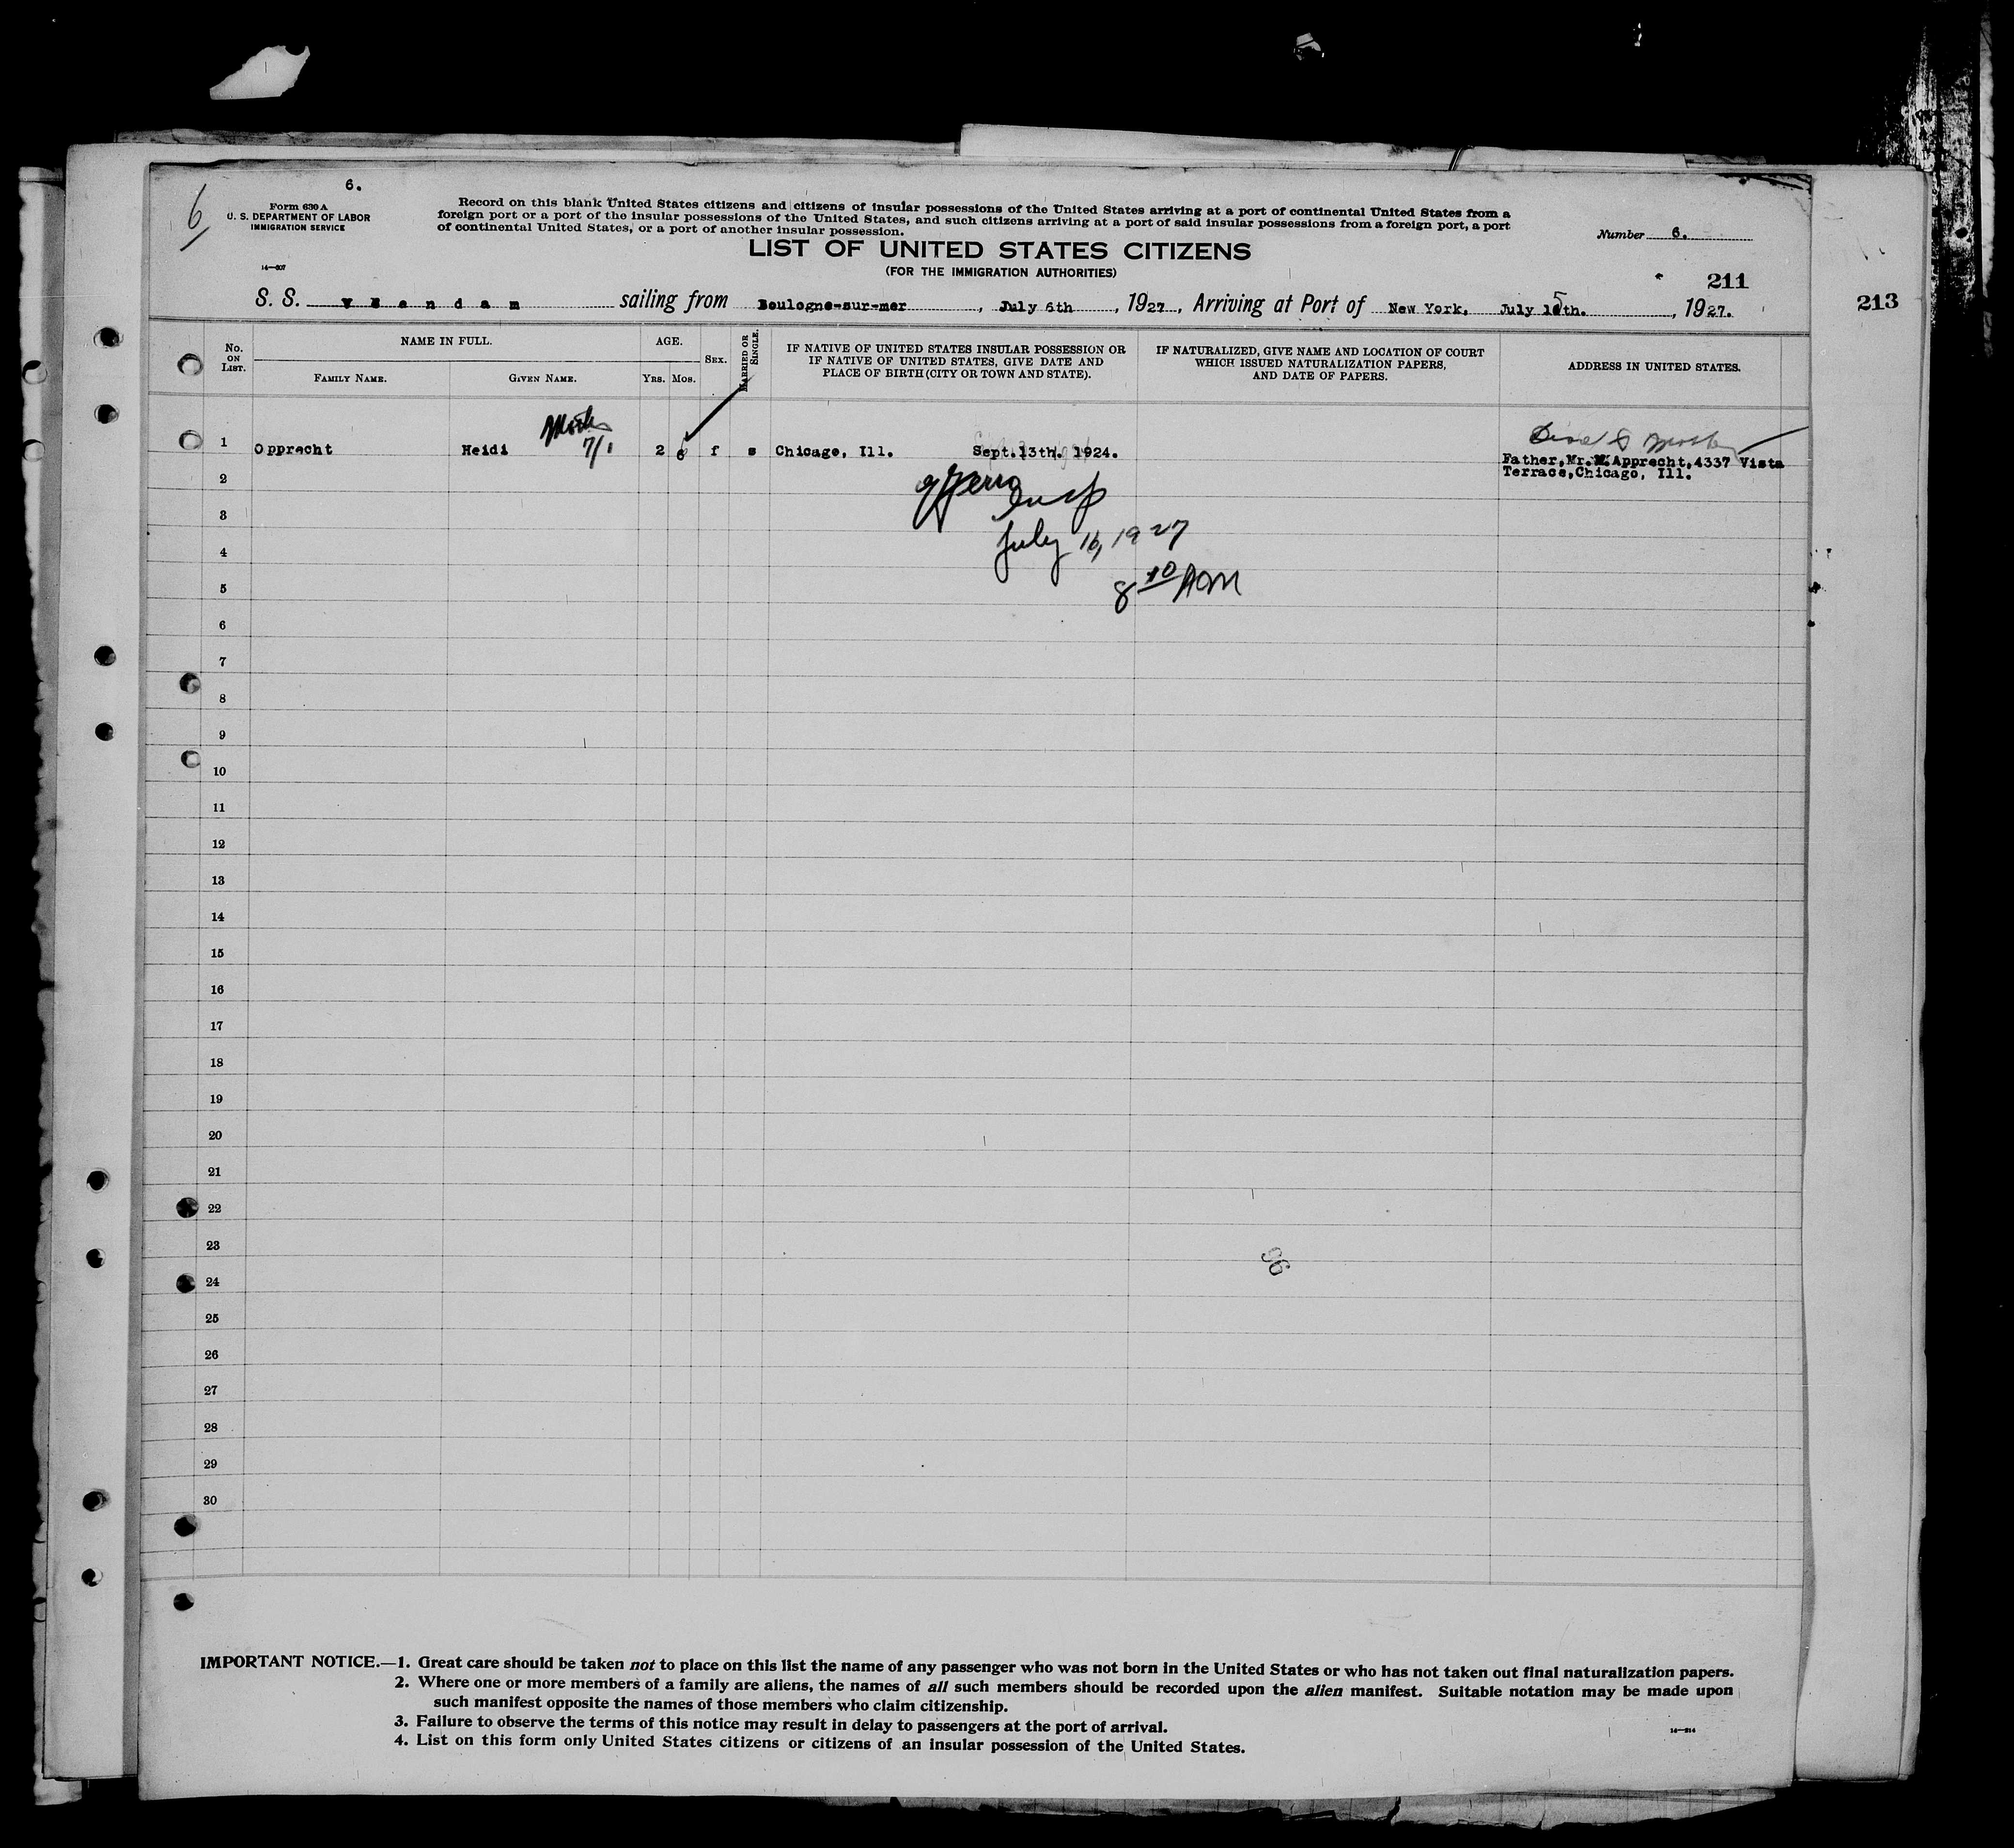 6.
6
Form 630 A
U. S. DEPARTMENT OF LABOR
IMMIGRATION SERVICE
14—207
Record on this blank United States citizens and citizens of insular possessions of the United States arriving at a port of continental United States from a
foreign port or a port of the insular possessions of the United States, and such citizens arriving at a port of said insular possessions from a foreign port, a port
of continental United States, or a port of another insular possession.
Number 6.
LIST OF UNITED STATES CITIZENS
(FOR THE IMMIGRATION AUTHORITIES)
211
213
S. S. v e e n d a m sailing from Boulogne-sur-mer, July 6th, 1927, Arriving at Port of New York, July 15th., 1927.
No. ON LIST.
NAME IN FULL.
FAMILY NAME.
GIVEN NAME.
AGE.
YRS. MOS.
SEX.
MARRIED OR SINGLE.
IF NATIVE OF UNITED STATES INSULAR POSSESSION OR
IF NATIVE OF UNITED STATES, GIVE DATE AND
PLACE OF BIRTH (CITY OR TOWN AND STATE).
IF NATURALIZED, GIVE NAME AND LOCATION OF COURT
WHICH ISSUED NATURALIZATION PAPERS,
AND DATE OF PAPERS.
ADDRESS IN UNITED STATES.
7/1
1 Opprecht Heidi 2 6 f s Chicago, Ill. Sept.13th. 1924.
Father,Mr. Apprecht,4337 Vista
Terrace,Chicago, Ill.
2
Insp
3
July 16, 1927
4
8 10 AM
5
6
7
8
9
10
11
12
13
14
15
16
17
18
19
20
21
22
23
96
24
25
26
27
28
29
30
IMPORTANT NOTICE.—1. Great care should be taken not to place on this list the name of any passenger who was not born in the United States or who has not taken out final naturalization papers.
2. Where one or more members of a family are aliens, the names of all such members should be recorded upon the alien manifest. Suitable notation may be made upon
such manifest opposite the names of those members who claim citizenship.
3. Failure to observe the terms of this notice may result in delay to passengers at the port of arrival.
4. List on this form only United States citizens or citizens of an insular possession of the United States.
14—214